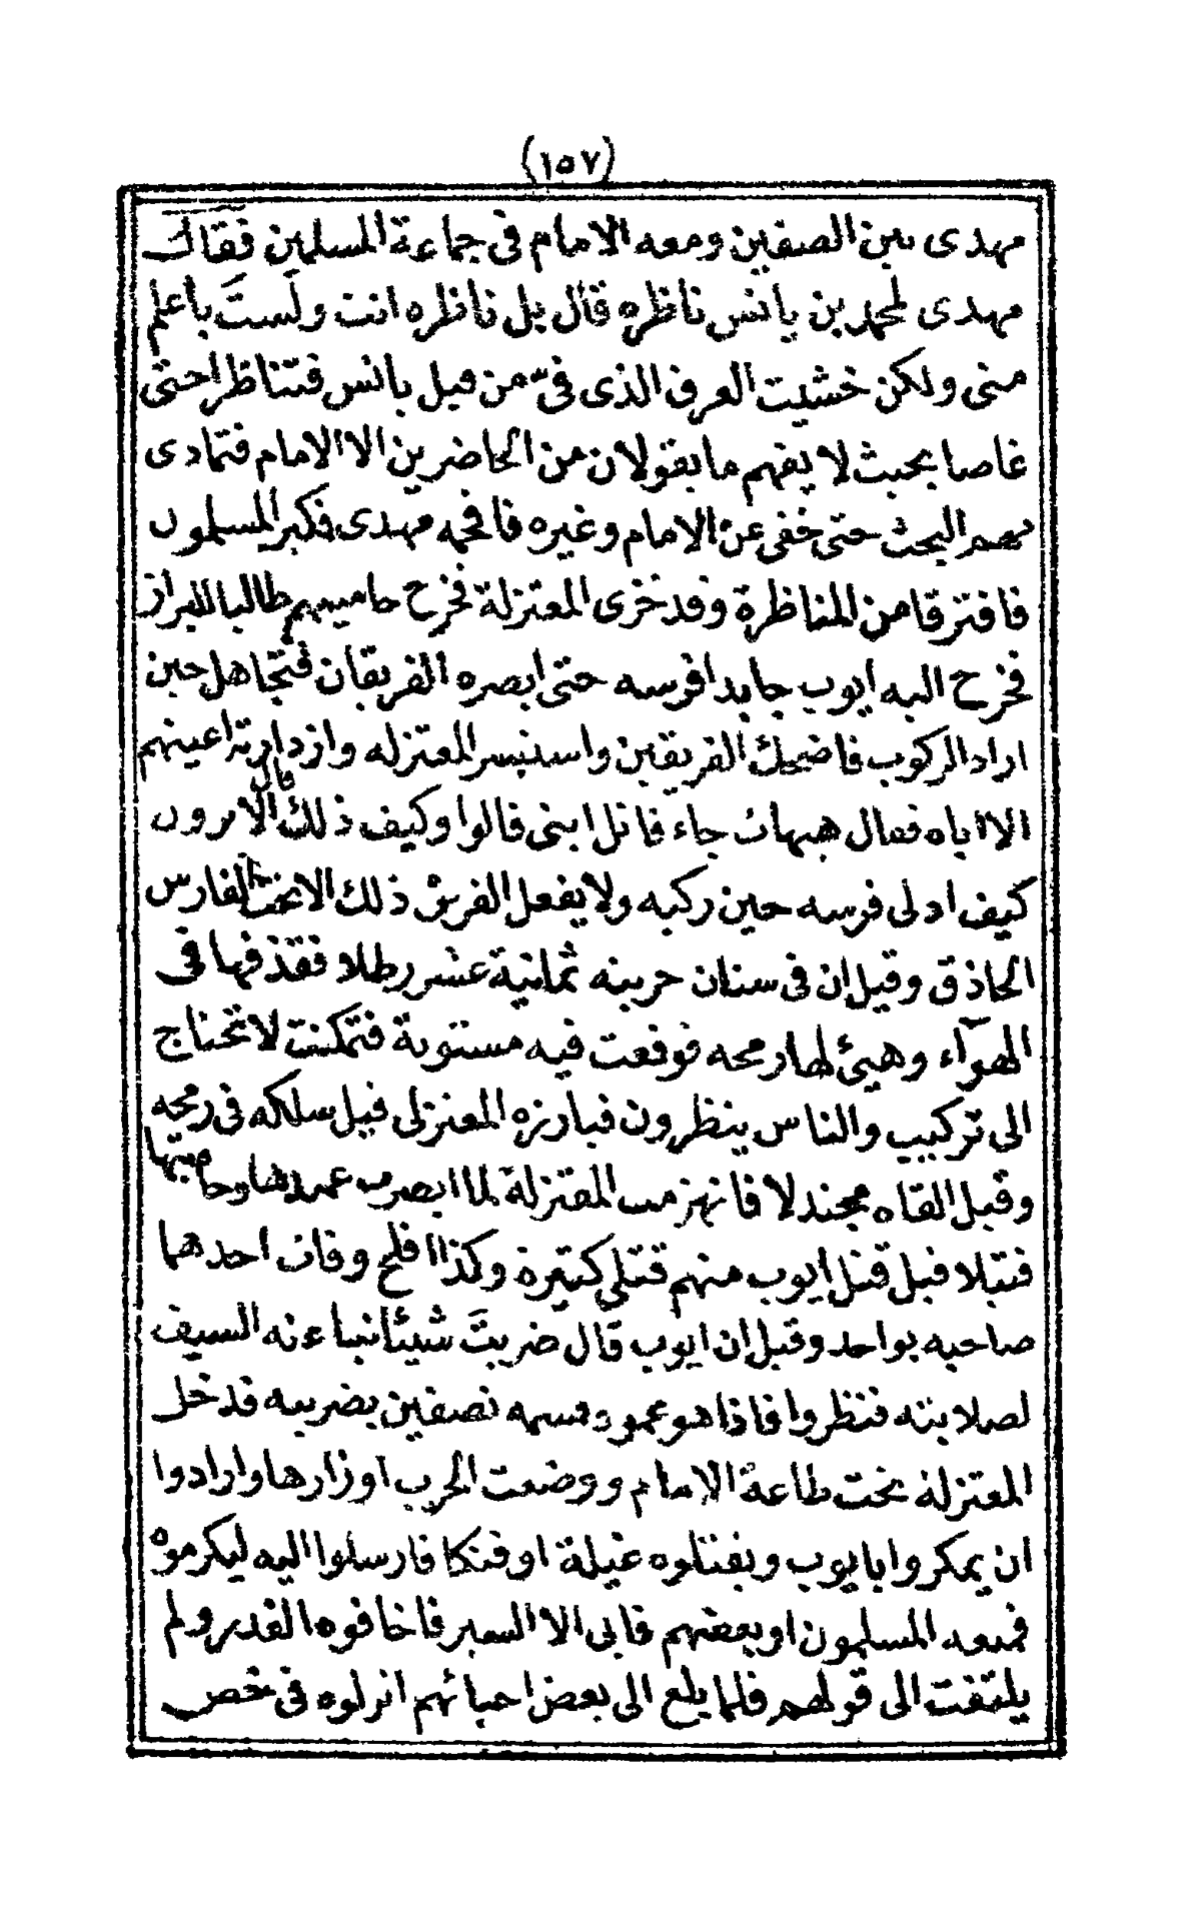 (١٥٧)
مهدى بين الصفين ومعه الامام فى جماعة المسلمين فقال
مهدى لمحمد بن يانس ناظره قال بل ناظره انت ولستَ باعلم
منى ولكن خشيت العرق الذى فىّ من قبل يانس فتناظرا حتى
غاصا بحيث لا يفهم ما يقولان من الحاضرين الا الامام فتمادى
بهم البحث حتى خفى عن الامام وغيره فافحمه مهدى فكبر المسلمون
فافترقا من المناظرة وقد خزى المعتزلة فخرج حاميهم طالبا للبراز
فخرج اليه ايوب جابدا فرسه حتى ابصره الفريقان فتجاهل حين
اراد الركوب فاضحك الفريقين واستبسر المعتزله وازدارته اعينهم
الا اباه فقال هيهات جاء قاتل ابنى قالوا وكيف ذلك قال الا ترون
كيف ادلى فرسه حين ركبه ولا يفعل الفرس ذلك الا تحت الفارس
الحاذق وقيل ان فى سنان حربته ثمانية عشر رطلا فقذفها فى
الهوآء وهيئ لها رمحه فوقعت فيه مستوية فتمكنت لا تحتاج
الى تركيب والناس ينظرون فبارزه المعتزلى قيل سلكه فى رمحه
وقيل القاه مجندلا فانهزمت المعتزلة لما ابصرت عمدها وحاميتها
قتيلا قيل قتل ايوب منهم قتلى كثيرة وكذا افلح وفات احدهما
صاحبه بواحد وقيل ان ايوب قال ضربتَ شيئا نبا عنه السيف
لصلابته فنظروا فاذا هو عمود قسمه نصفين بضربته فدخل
المعتزلة تحت طاعة الامام ووضعت الحرب اوزارها وارادوا
ان يمكروا بايوب ويقتلوه غيلة او فتكا فارسلوا اليه ليكرموه
فمنعه المسلمون او بعضهم فابى الا السير فاخافوه الغدر ولم
يلتفت الى قولهم فلما بلغ الى بعض احيائهم انزلوه فى خص